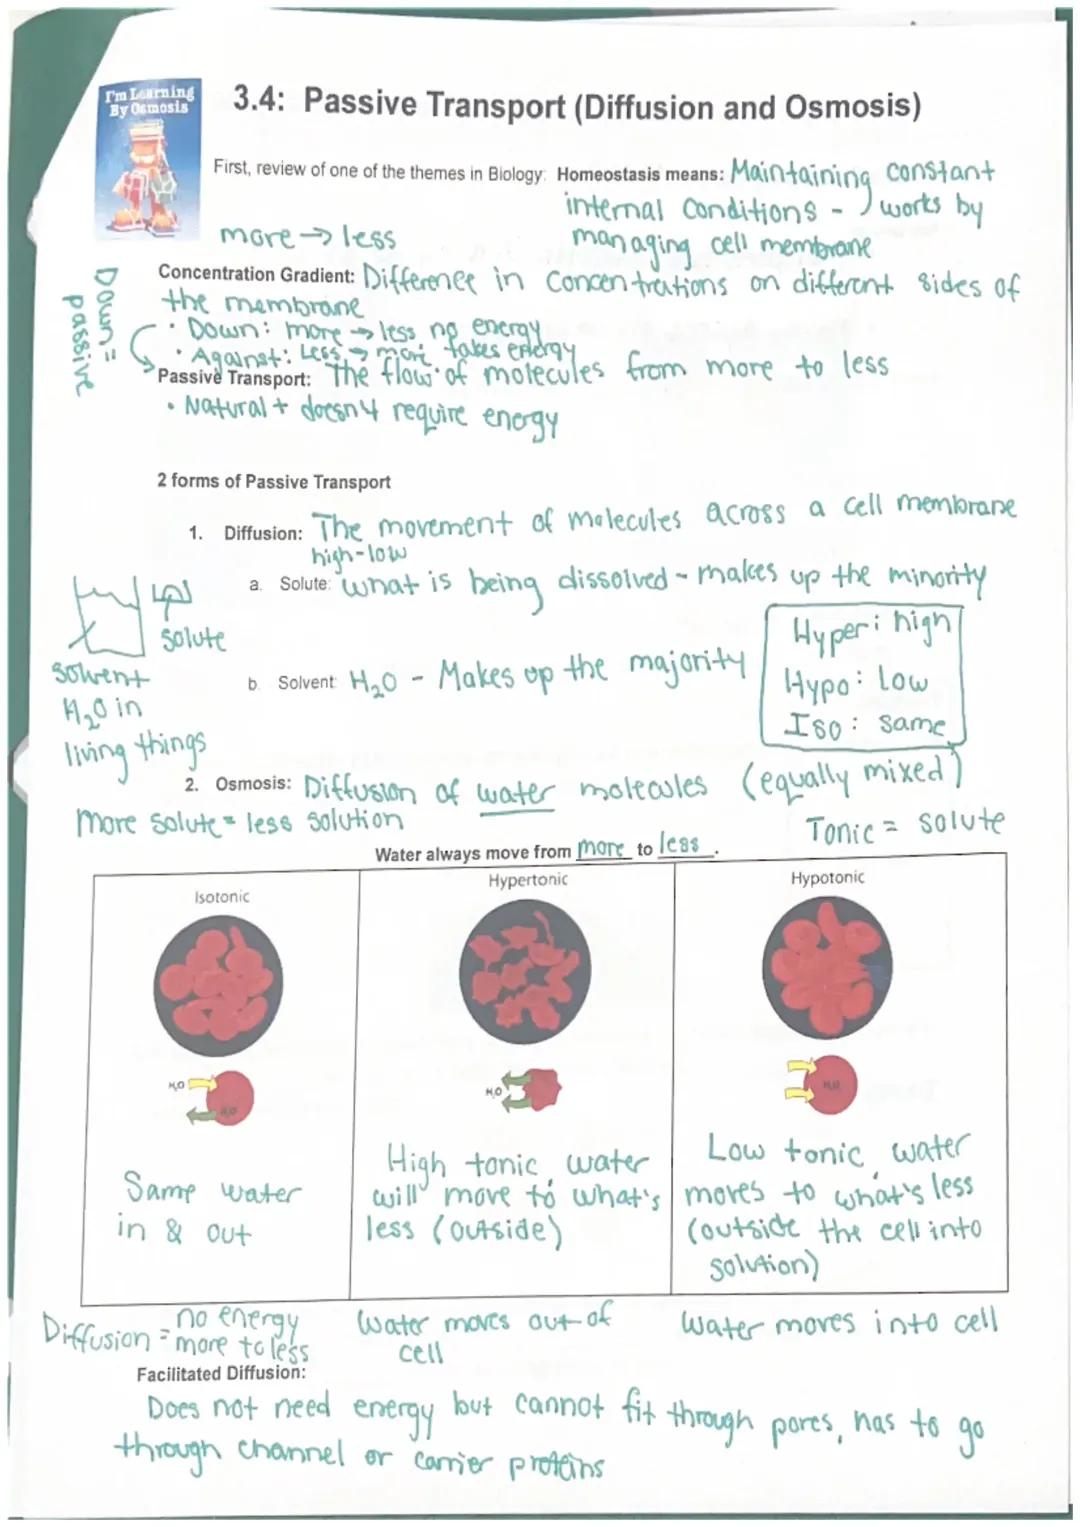 I'm Learning
By Osmosis
3.4: Passive Transport (Diffusion and Osmosis)
First, review of one of the themes in Biology: Homeostasis means: Maintaining constant
internal conditions - works by
managing cell membrane
more → less
Concentration Gradient: Difference in concentrations on different sides of
the membrane
• Down: more → less no energy
• Against: Less → more takes energy
Down =
passive
Passive Transport: The flow of molecules from more to less
• Natural + doesn't require energy
2 forms of Passive Transport
1. Diffusion: The movement of molecules across a cell membrane
high-low
a. Solute: what is being dissolved - makes up the minority
solute
solvent
H₂O in
living things
b. Solvent: H₂O - Makes up the majority
Hyper: high
Hypo: Low
Iso: same
(equally mixed)
2. Osmosis: Diffusion of water molecules
more solute = less solution
Tonic = solute
Water always move from more to less.
Isotonic
H₂O
H₂O
Same water
in & out
Hypertonic
H₂O
High tonic, water
will move to what's
less (outside)
Hypotonic
H₂O
Low tonic, water
moves to what's less
(outside the cell into
solution)
Diffusion = no energy
more to less
Water moves out of
cell
Water moves into cell
Facilitated Diffusion:
Does not need energy but cannot fit through pores, has to go
through channel or carrier proteins